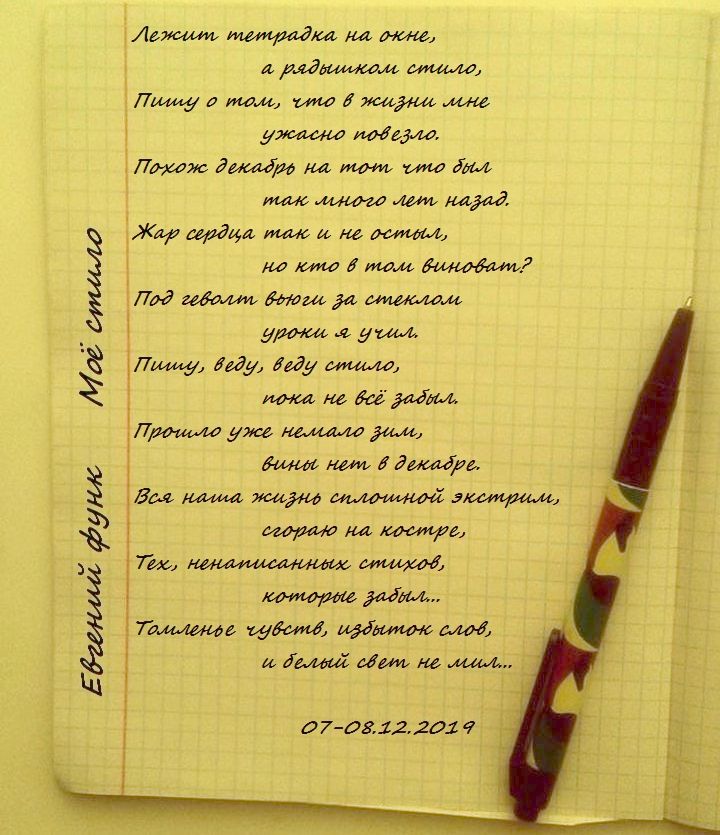 Лежит тетрадка на окне,
а рядышком стило,
Пишу о том, что в жизни мне
ужасно повезло.
Похож декабрь на тот что был
так много лет назад.
Жар сердца так и не остыл,
но кто в том виноват?
Под геволт вьюги за стеклом
уроки я учил.
Пишу, веду, веду стило,
пока не всё забыл.
Прошло уже немало зим,
вины нет в декабре.
Вся наша жизнь сплошной экстрим,
сгораю на костре,
Тех, ненаписанных стихов,
которые забыл...
Томленье чувств, избыток слов,
и белый свет не мил...
07-08.12.2019
Евгений функ Моё стило